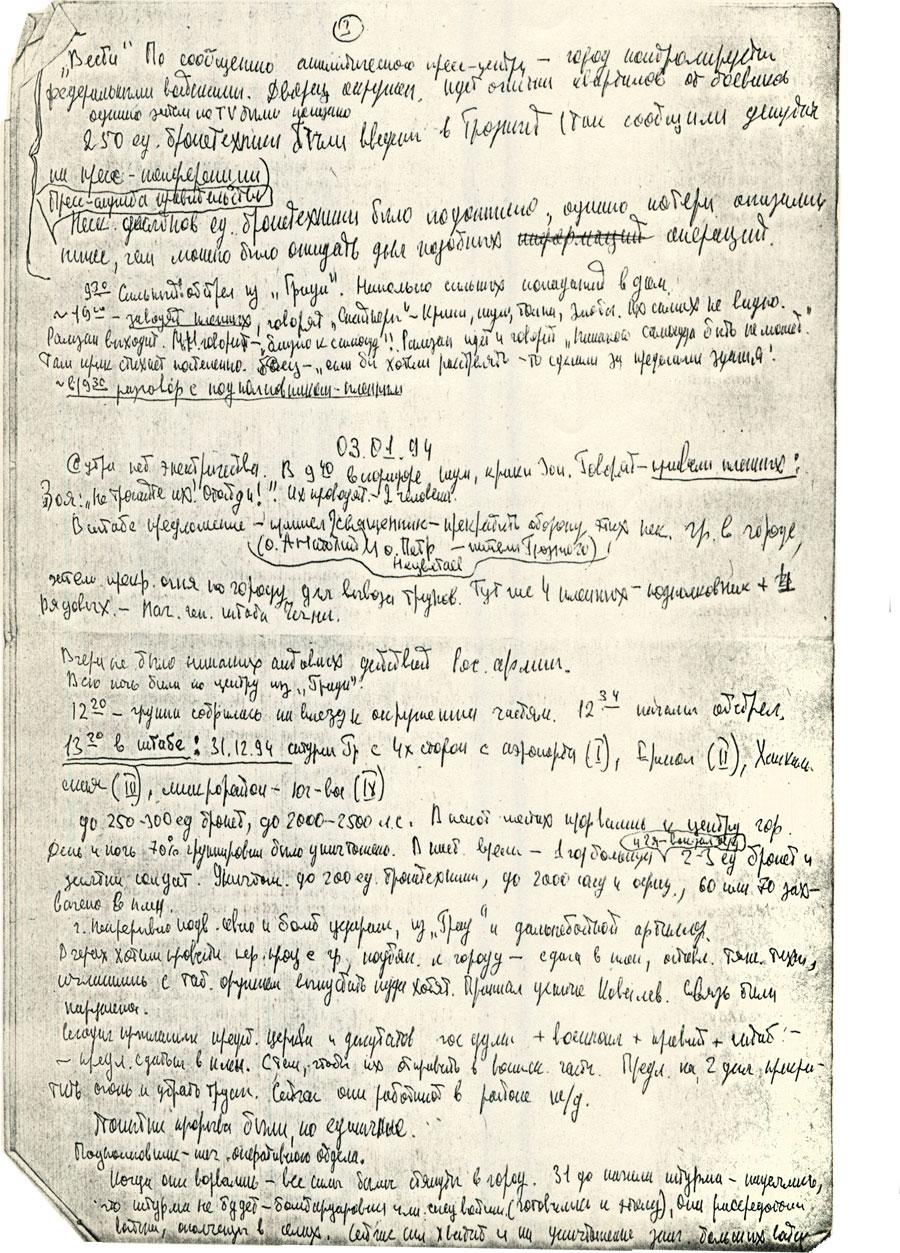 9
„Вести" По сообщению аналитического пресс-центра – город контролируется
федеральными войсками. Дворец окружен. Идет очистка кварталов от боевиков
однако затем по TV было
250 ед. бронетехники были введены в Грозный (так сообщили депутаты
на пресс-конференции)
Пресс-служба правительства
Неск. десятков ед. бронетехники было подбито, однако потери оказались
ниже, чем можно было ожидать для подобных операций.
9 30 Сильный обстрел из „Града". Несколько сильных попаданий в дом.
~ 19 00 – заводят пленных, говорят „Снайперы" – Крики, шум, толпа, злоба. Их самих не видно.
Рамзан выходит. говорит – „Близко к самосуду"! Рамзан идет и говорит „Никакого самосуда быть не может".
Там крик стихает постепенно. Боец – „если бы хотели расстрелять – то сделали за пределами здания!
~ в 19 30 разговор с подполковником-пленным
03.01.94
С утра нет электричества. В 9 40 в коридоре шум, крики Зои. Говорят – привели пленных:
Зоя: „Не трогайте их! Отойди!". Их проводят – 2 человека.
В штабе предложение – пришел священник – прекратить оборону этих нек. гр. в городе,
(о. Анатолий и о. Петр – жители Грозного)
затем прекр. огня по городу для вывоза трупов. Тут же 4 пленных – подполковник +
рядовых. – Нач. ген. штаба Чечни.
Вчера не было никаких активных действий рос. армии.
Всю ночь били по центру из „Града".
12 20 – группа собралась на выезд к окруженным частям. 12 34 начался обстрел.
13 20 в штабе: 31.12.94 штурм Гр с 4х сторон с аэропорта (I), (II), Ханкаль-
ская (III), микрорайон – юг-вос (IV)
до 250-300 ед бронет, до 2000-2500 л.с. В неск местах прорвались к центру гор.
День и ночь 70% группировки было уничтожено. В наст. время – 1 гор больница 2-3 ед бронет и
десятки солдат. Уничтож. до 200 ед. бронетехники, до 2000 солд и офиц., 60 или 70 зах-
вачено в плен.
г. Непрерывно подв. авиа и бомб ударам, из „Град" и дальнобойной артиллер.
Вчера хотели провести пер. проц с гр. подбл. к городу – сдача в плен, оставл. тяж. техн,
с таб. оружием выпустить куда хотят. Приехал Ковалев. Связь была
нарушена.
Сегодня пригласили предст. церкви и депутатов гос думы + военком + правит + штаб: –
– предл. сдаться в плен. С тем, чтобы их отправить в воинск. часть. Предл. на 2 дня прекра-
тить огонь и убрать трупы. Сейчас они работают в районе ж/д.
Попытки прорыва были, но единичные.
Подполковник – нач. оперативного отдела.
Когда они ворвались – все силы были стянуты в город. 31 до начала штурма – надеялись,
что штурма не будет – бомбардировки или спец войска (готовились к этому), они рассредоточ
войска, в селах. Сейчас сил хватит и на уничтожение знач. больших войск